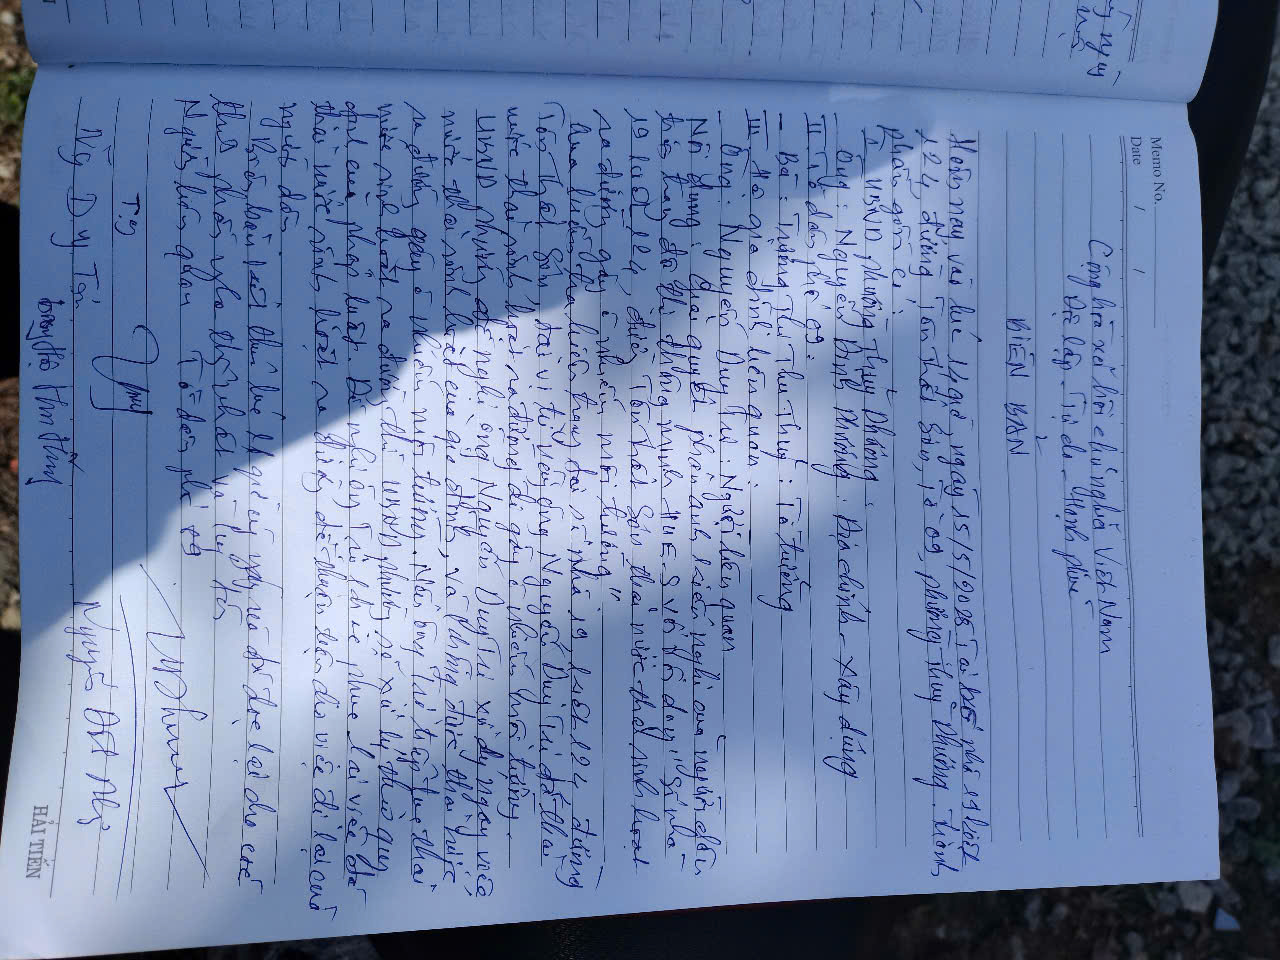 Memo No.
Date / /
Cộng hòa xã hội chủ nghĩa Việt Nam
Độc lập - Tự do - Hạnh phúc
BIÊN BẢN
Hôm nay, vào lúc 14 giờ ngày 15/5/2023 Tại nhà 19 kiệt
124, đường Tôn Thất Sơn, Tổ 09, phường Thủy Phương. thành
phần gồm có:
I. UBND phường Thủy Phương
- Ông: Nguyễn Đình Phương: Địa chính - Xây dựng
II. Tổ dân phố 9:
- Bà: Trương Thị Thu Thủy: Tổ trưởng
III. Hộ gia đình liên quan:
- Ông: Nguyễn Duy Tư: Người liên quan
Nội dung: Giải quyết phản ánh kiến nghị của người dân
trên trang đô thị thông minh HUE-S với nội dung "Số nhà
19 kiệt 124, đường Tôn Thất Sơn thải nước thải sinh hoạt
ra đường gây ô nhiễm môi trường"
Qua kiểm tra hiện trạng tại số nhà 19 kiệt 124 đường
Tôn Thất Sơn, tại vị trí này ông Nguyễn Duy Tư đã thải
nước thải sinh hoạt ra đường đi gây ô nhiễm môi trường.
UBND phường đề nghị ông Nguyễn Duy Tư xử lý ngay việc
nước thải sinh hoạt của gia đình, và dừng việc thải nước
ra đường gây ô nhiễm môi trường. Nếu ông Tư tiếp tục thải
nước sinh hoạt ra đường thì UBND phường sẽ xử lý theo quy
định của pháp luật. Đồng thời khắc phục lại việc đã
thải nước sinh hoạt ra đường để thuận tiện cho việc đi lại của
người dân.
Biên bản kết thúc lúc giờ cùng ngày và đã đọc lại cho các
thành phần nghe thống nhất và ký tên
Người liên quan Tổ dân phố 09
Tư
Ng Duy Tư
HẢI TIẾN